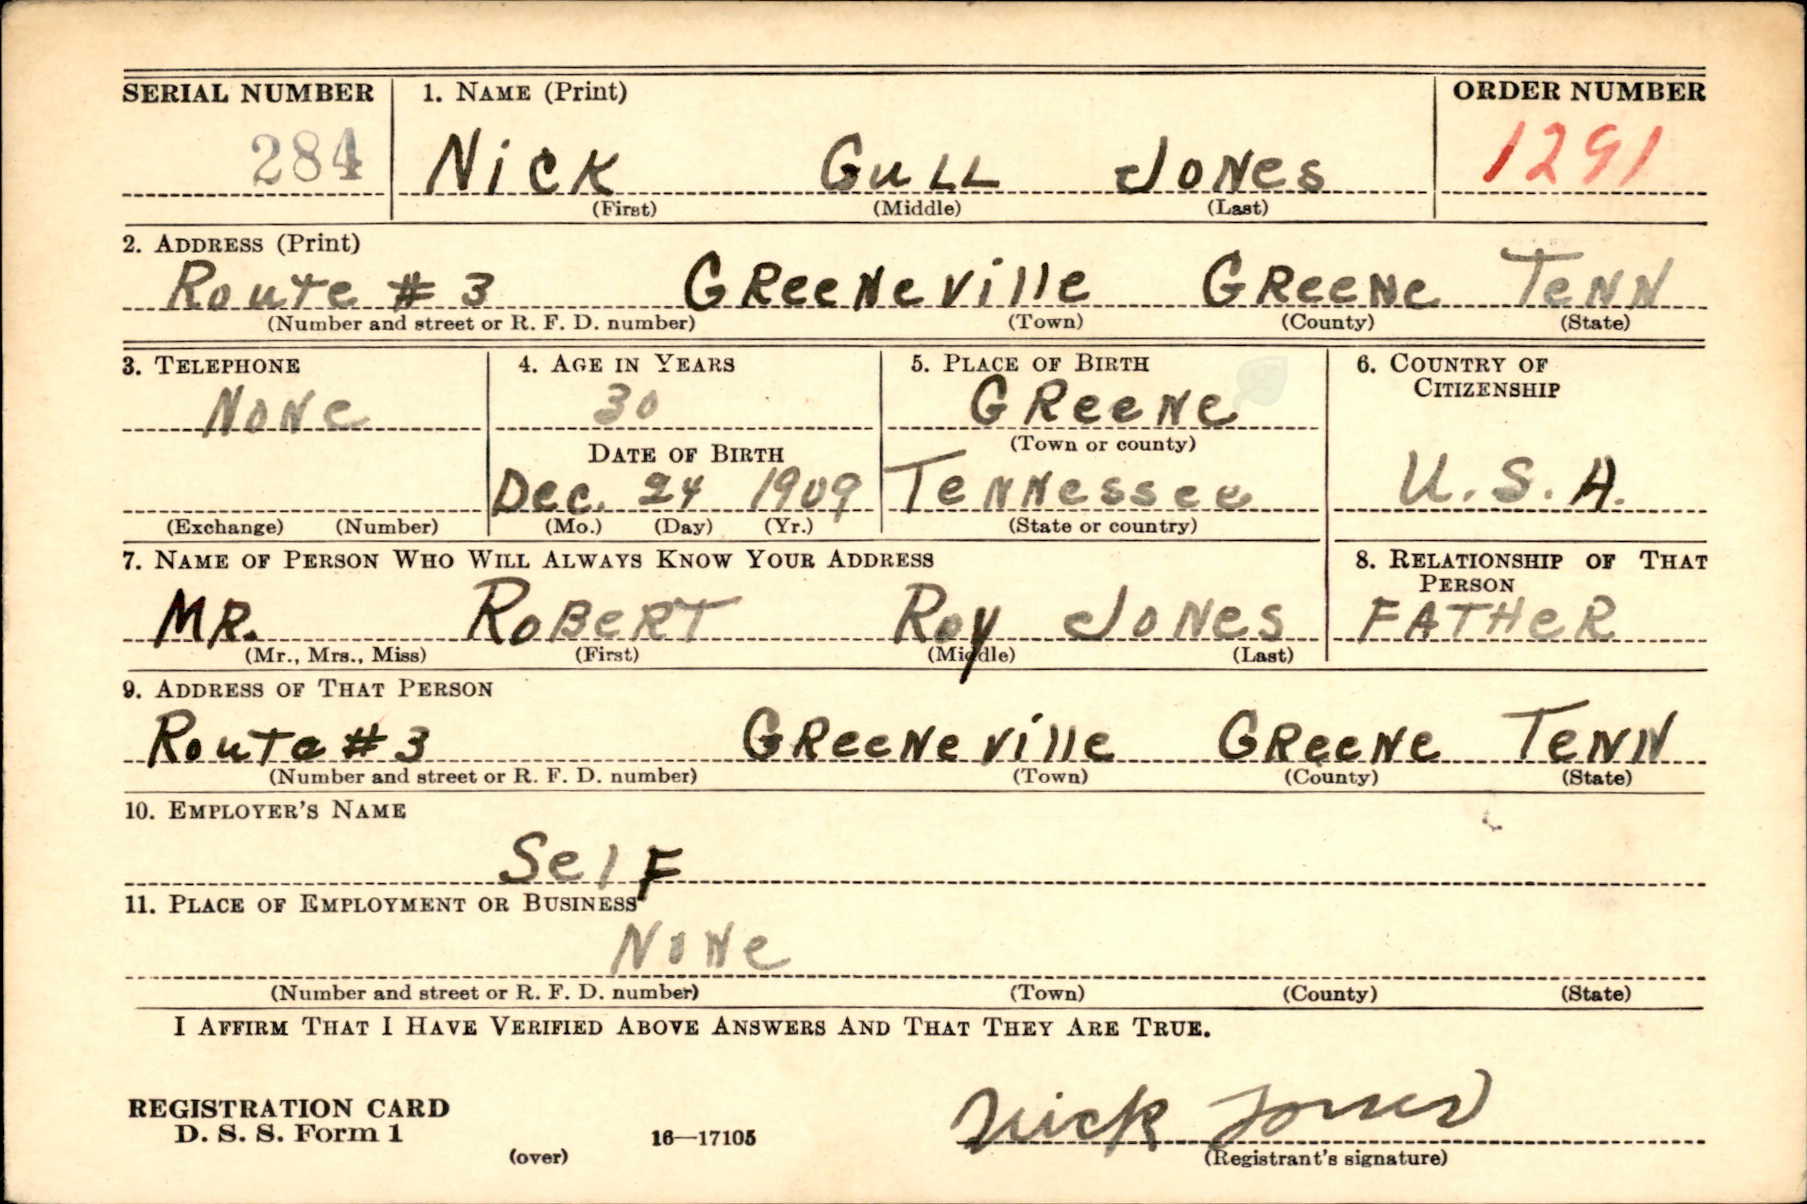 SERIAL NUMBER 1. NAME (Print) ORDER NUMBER
284 NICK GULL JONES 1291
(First) (Middle) (Last)
2. ADDRESS (Print)
Route # 3 GReeNeville GReeNe TeNN
(Number and street or R. F. D. number) (Town) (County) (State)
3. TELEPHONE 4. AGE IN YEARS 5. PLACE OF BIRTH 6. COUNTRY OF CITIZENSHIP
NoNe 30 GReeNe
DATE OF BIRTH (Town or county)
Dec. 24 1909 TeNNessee U.S.A.
(Exchange) (Number) (Mo.) (Day) (Yr.) (State or country)
7. NAME OF PERSON WHO WILL ALWAYS KNOW YOUR ADDRESS 8. RELATIONSHIP OF THAT PERSON
MR. RoBeRT Roy JoNes FATHeR
(Mr., Mrs., Miss) (First) (Middle) (Last)
9. ADDRESS OF THAT PERSON
Route # 3 GReeNeville GReeNe TeNN
(Number and street or R. F. D. number) (Town) (County) (State)
10. EMPLOYER'S NAME
SelF
11. PLACE OF EMPLOYMENT OR BUSINESS
NoNe
(Number and street or R. F. D. number) (Town) (County) (State)
I AFFIRM THAT I HAVE VERIFIED ABOVE ANSWERS AND THAT THEY ARE TRUE.
REGISTRATION CARD
D. S. S. Form 1 16—17105 Nick Jones
(over) (Registrant's signature)